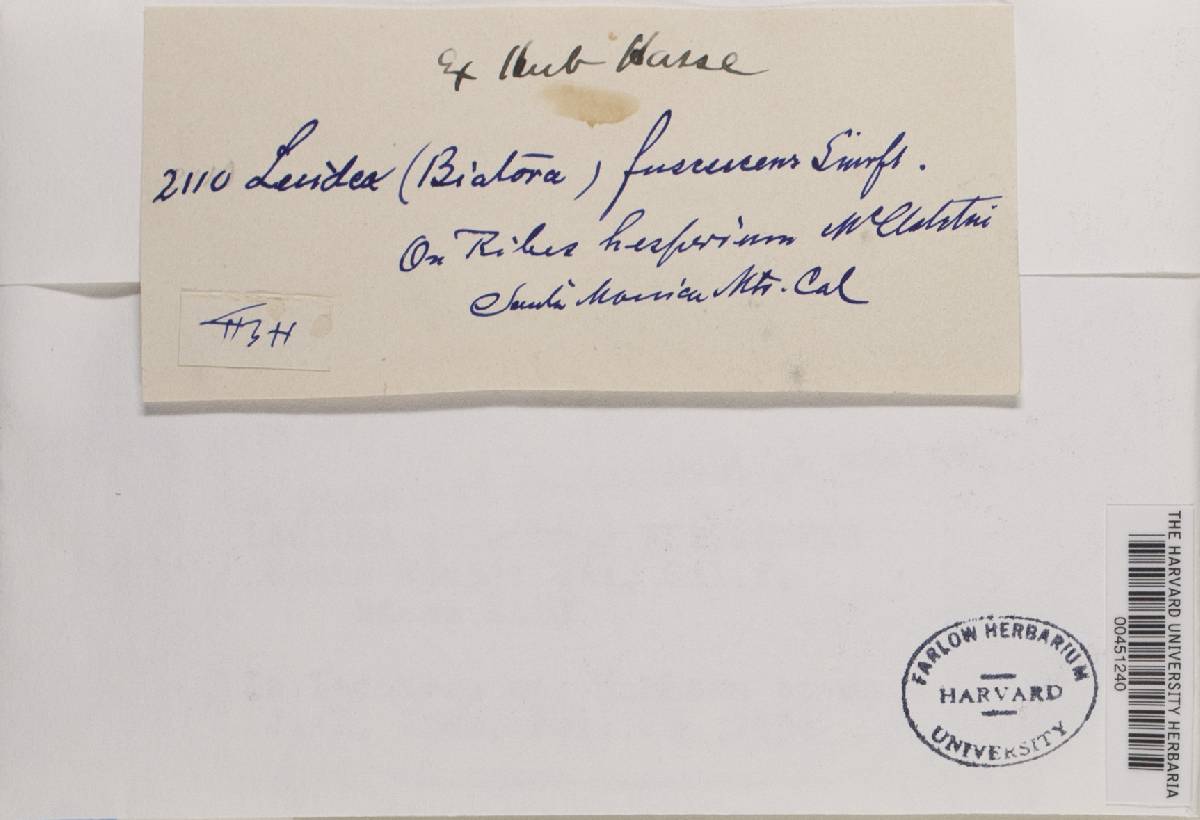 Ex Herb Hasse
2110 Lecidea (Biatora) fuscescens Smrft.
On Ribes hesperium McClatchie
Santa Monica Mts. Cal
FARLOW HERBARIUM
HARVARD
UNIVERSITY
THE HARVARD UNIVERSITY HERBARIA
00451240